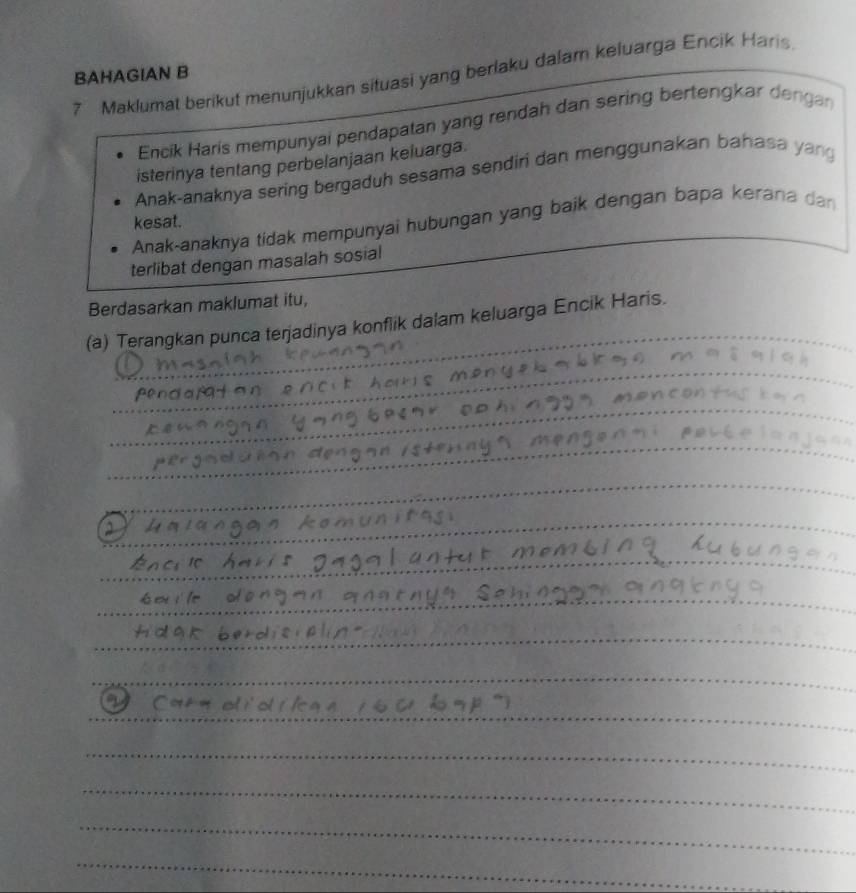 BAHAGIAN B
7 Maklumat berikut menunjukkan situasi yang berlaku dalam keluarga Encik Haris.
• Encik Haris mempunyai pendapatan yang rendah dan sering bertengkar dengan
isterinya tentang perbelanjaan keluarga.
• Anak-anaknya sering bergaduh sesama sendiri dan menggunakan bahasa yang
kesat.
• Anak-anaknya tidak mempunyai hubungan yang baik dengan bapa kerana dan
terlibat dengan masalah sosial
Berdasarkan maklumat itu,
(a) Terangkan punca terjadinya konflik dalam keluarga Encik Haris.
① masalah kewangan
pendapatan encik haris menyebabkan masalah
kewangan yang besar sehingga mencentuskan
pergaduhan dengan isterinya mengenai perbelanjaan
② halangan komunikasi
Encik haris gagal untuk membing hubungan
baik dengan anaknya sehingga anaknya
tidak berdisiplin
cara didikan ibu bapa